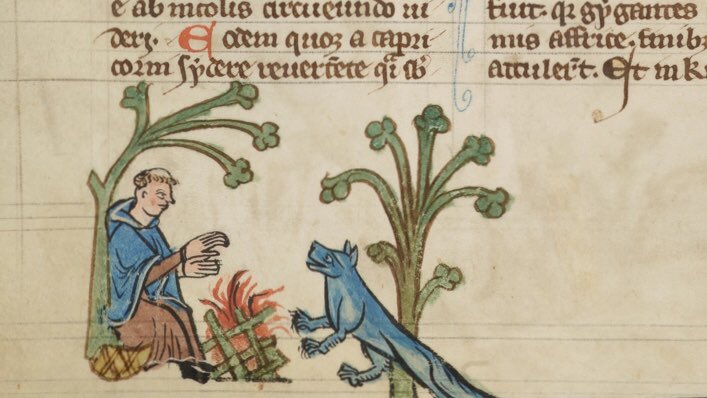 e ab incolis circueundo in
derꝫ. Eodem quoqꝫ a capri
corni sydere reuertẽte qͥ sb̾
fuit. qꝛ gygantes
nus affrice, finibꝫ
acculer̃t. Et in k